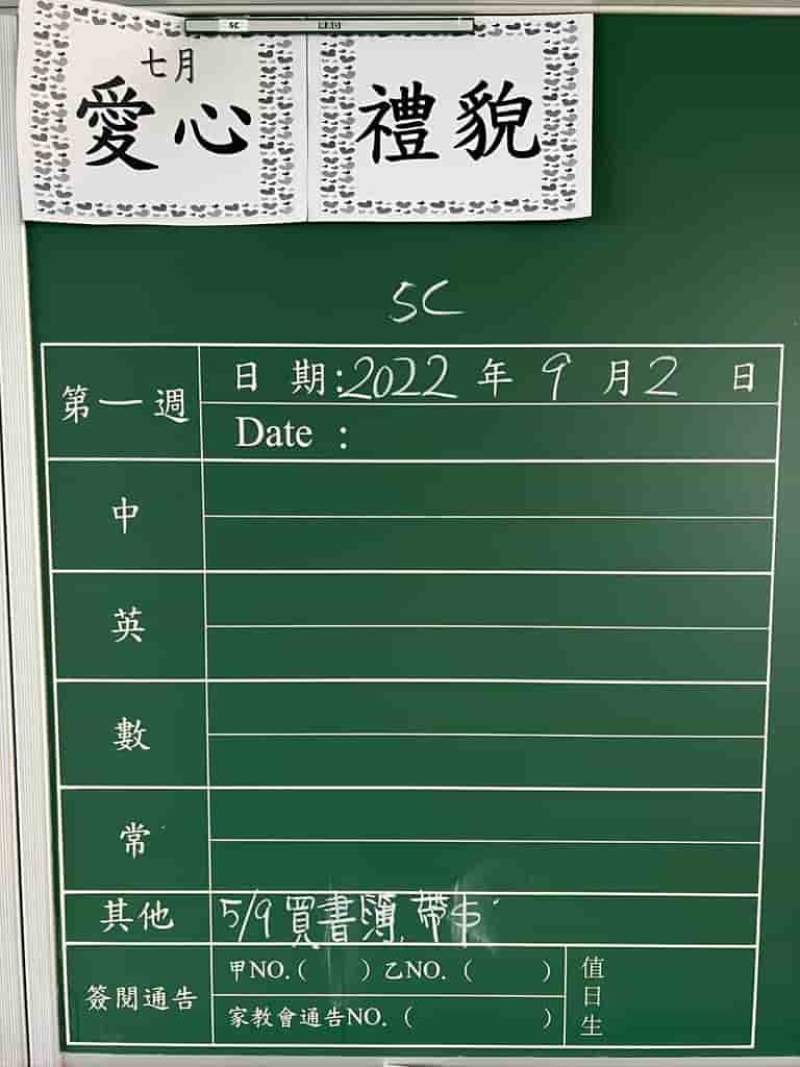 5C
七月
愛心
禮貌
5C
第一週
日 期:2022 年 9 月 2 日
Date :
中
英
數
常
其他
5/9 買書簿,帶
簽閱通告
甲NO.( ) 乙NO. ( )
家教會通告NO. ( )
值日生